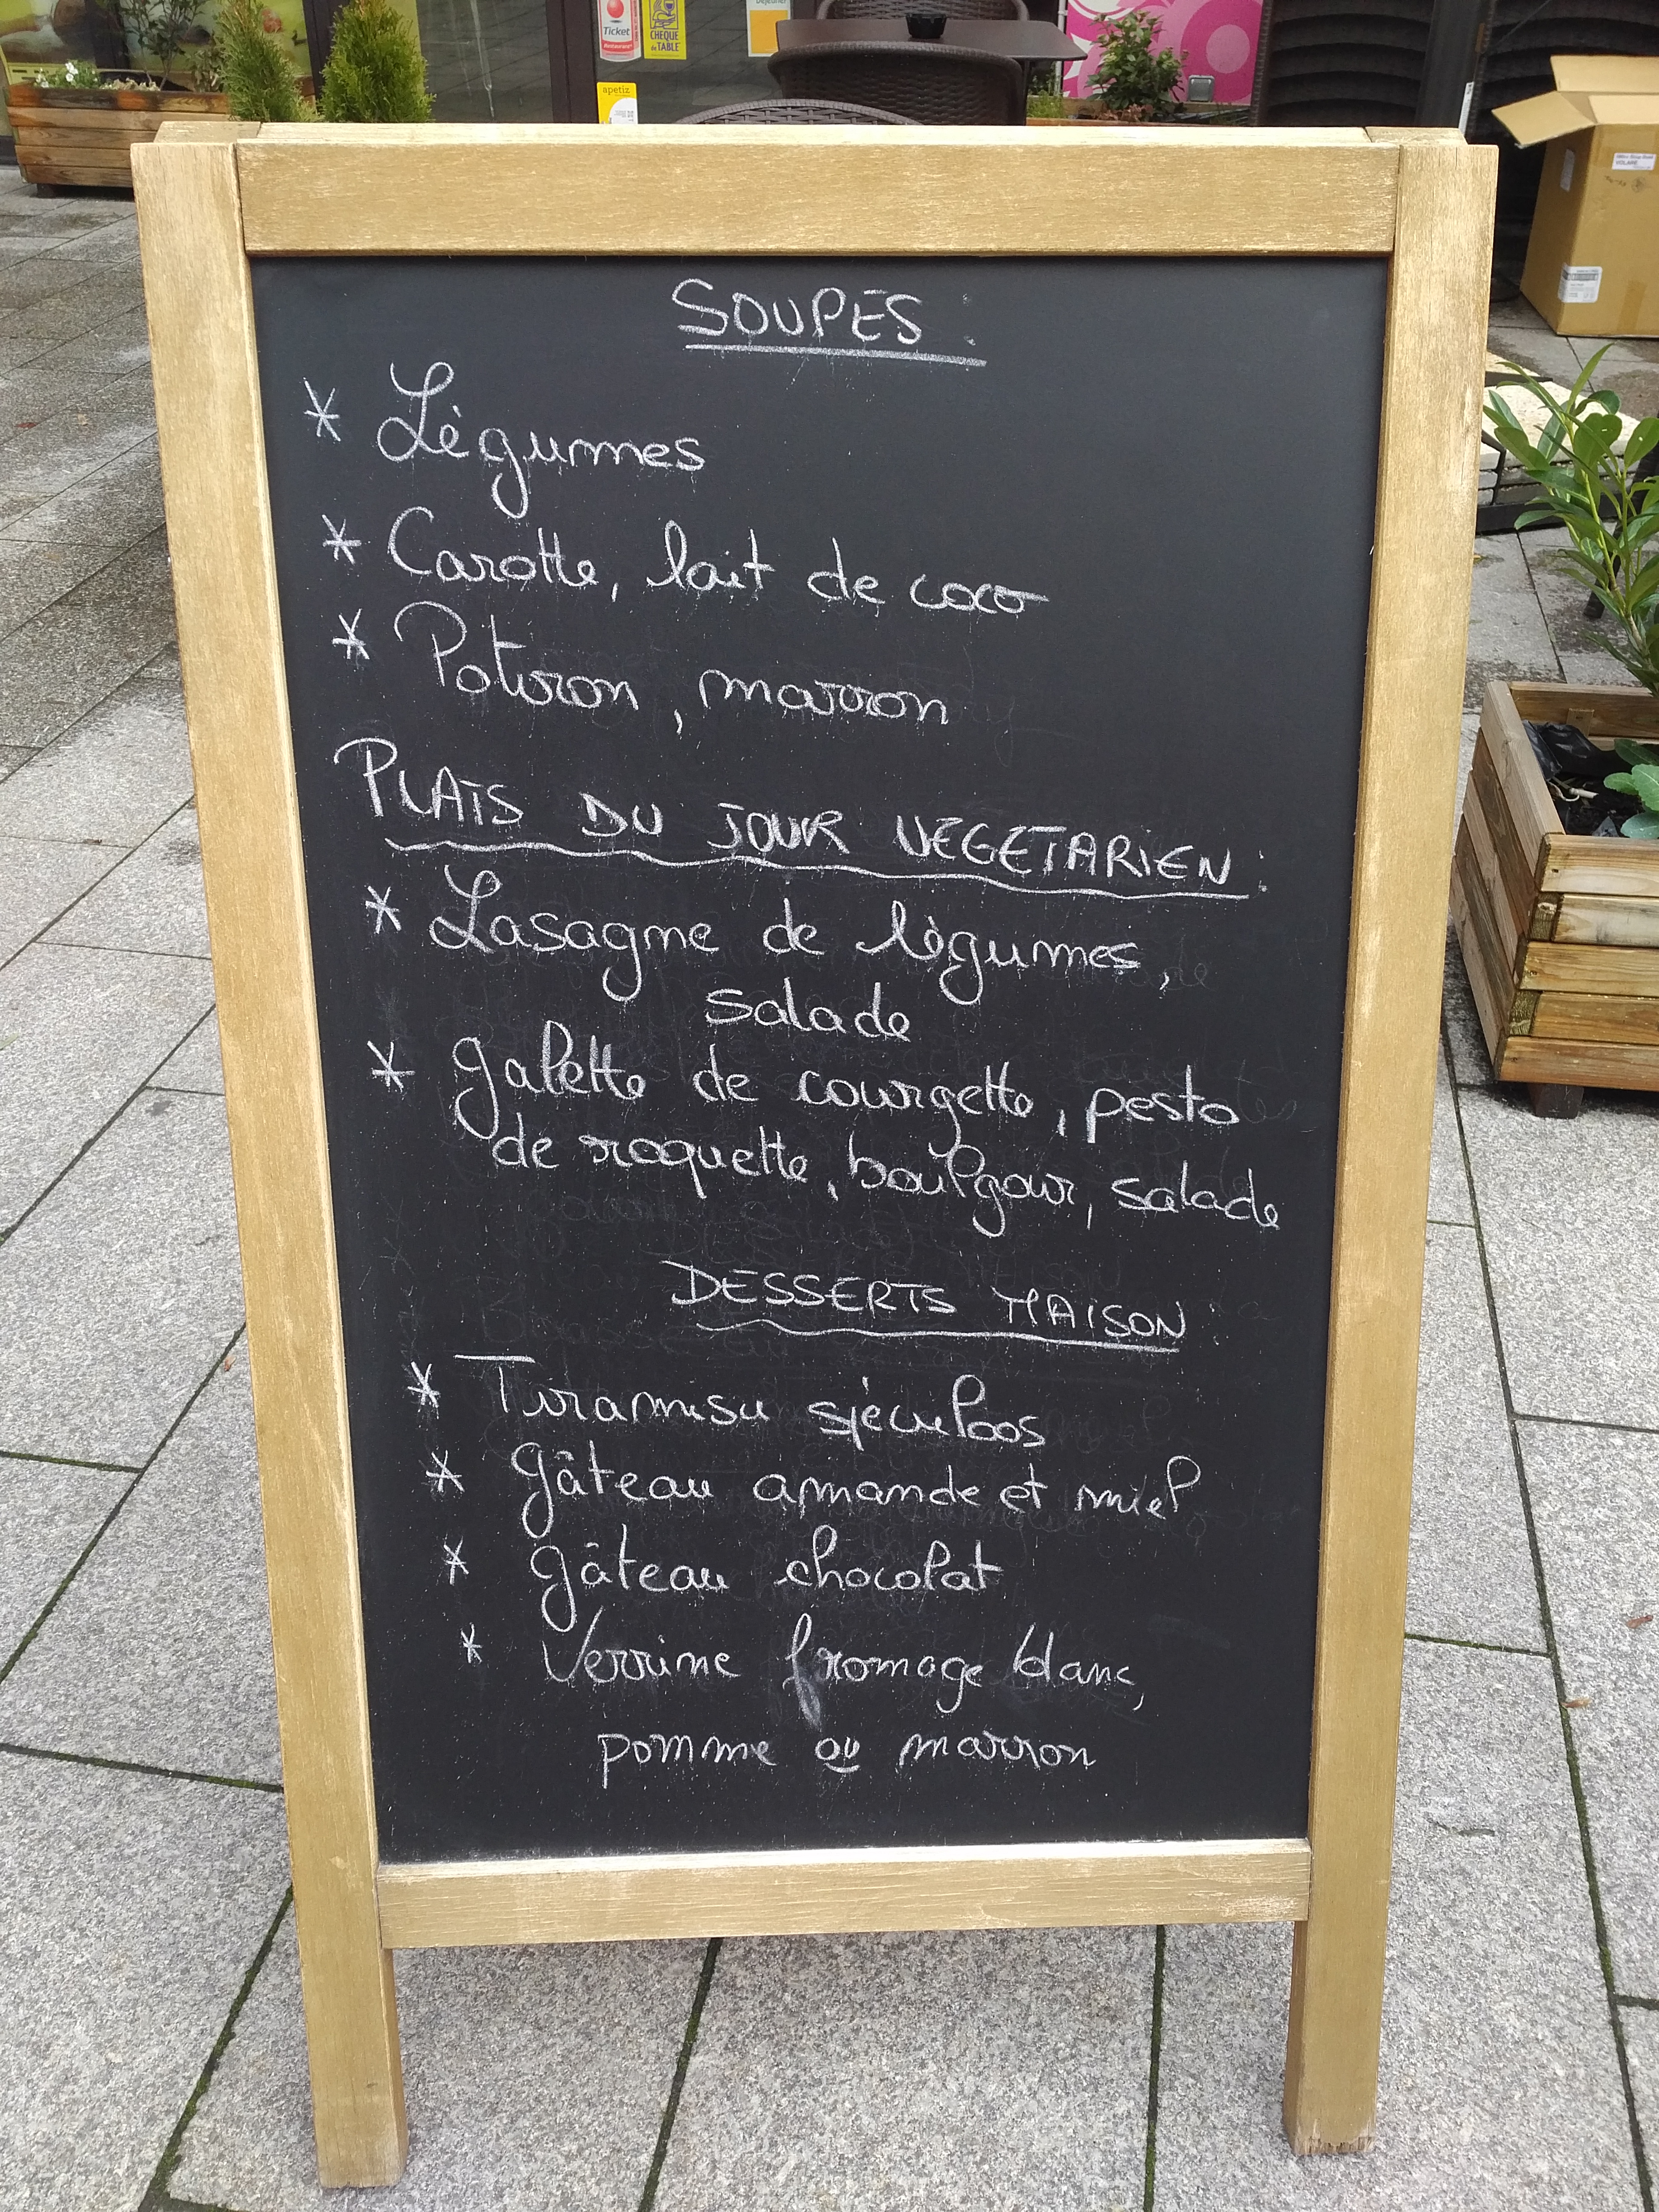 Ticket
Restaurant
CHEQUE
de TABLE
Déjeuner
apetiz
SOUPES :
* Légumes
* Carotte, lait de coco
* Potiron, marron
PLATS DU JOUR VEGETARIEN :
* Lasagne de légumes,
salade
* galette de courgette, pesto
de roquette, boulgour, salade
DESSERTS MAISON :
* Tiramisu spéculoos
* gâteau amande et miel
* gâteau chocolat
* Verrine fromage blanc,
pomme ou marron